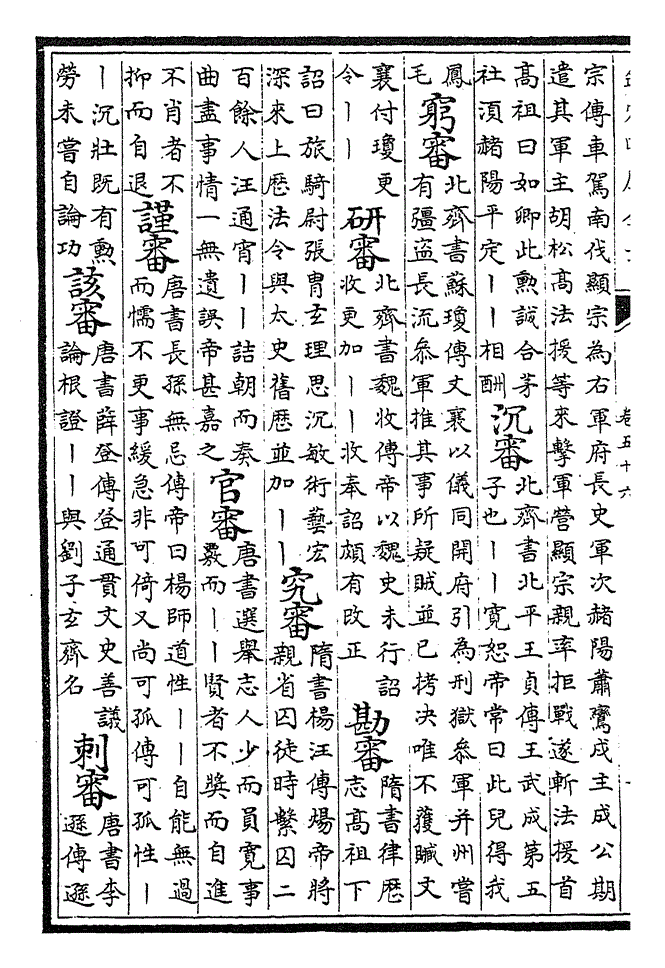 宗傳車駕南伐顯宗為右軍府長史軍次赭陽蕭鸞戍主成公期
遣其軍主胡松髙法援等來擊軍營顯宗親率拒戰遂斬法援首
髙祖曰如卿此勲誠合茅
社湏赭陽平定丨丨相酬
沉審
北齊書北平王貞傳王武成第五
子也丨丨寛恕帝常曰此兒得我
鳳
毛
窮審
北齊書蘇瓊傳文襄以儀同開府引為刑獄叅軍并州嘗
有彊盗長流叅軍推其事所疑賊並已拷决唯不獲贓文
襄付瓊更
令丨丨
研審
北齊書魏收傳帝以魏史未行詔
收更加丨丨收奉詔頗有改正
勘審
隋書律歴
志髙祖下
詔曰旅騎尉張胄玄理思沉敏術藝宏
深來上歴法令與太史舊歴並加丨丨
究審
隋書楊汪傳煬帝將
親省囚徒時繫囚二
百餘人汪通宵丨丨詰朝而奏
曲盡事情一無遺誤帝甚嘉之
官審
唐書選舉志人少而員寛事
覈而丨丨賢者不奬而自進
不肖者不
抑而自退
謹審
唐書長孫無忌傳帝曰楊師道性丨丨自能無過
而懦不更事緩急非可倚又尚可孤傳可孤性丨
丨沉壯既有勲
勞未嘗自論功
該審
唐書薛登傳登通貫文史善議
論根證丨丨與劉子玄齊名
刺審
唐書李
遜傳遜
卷五十六